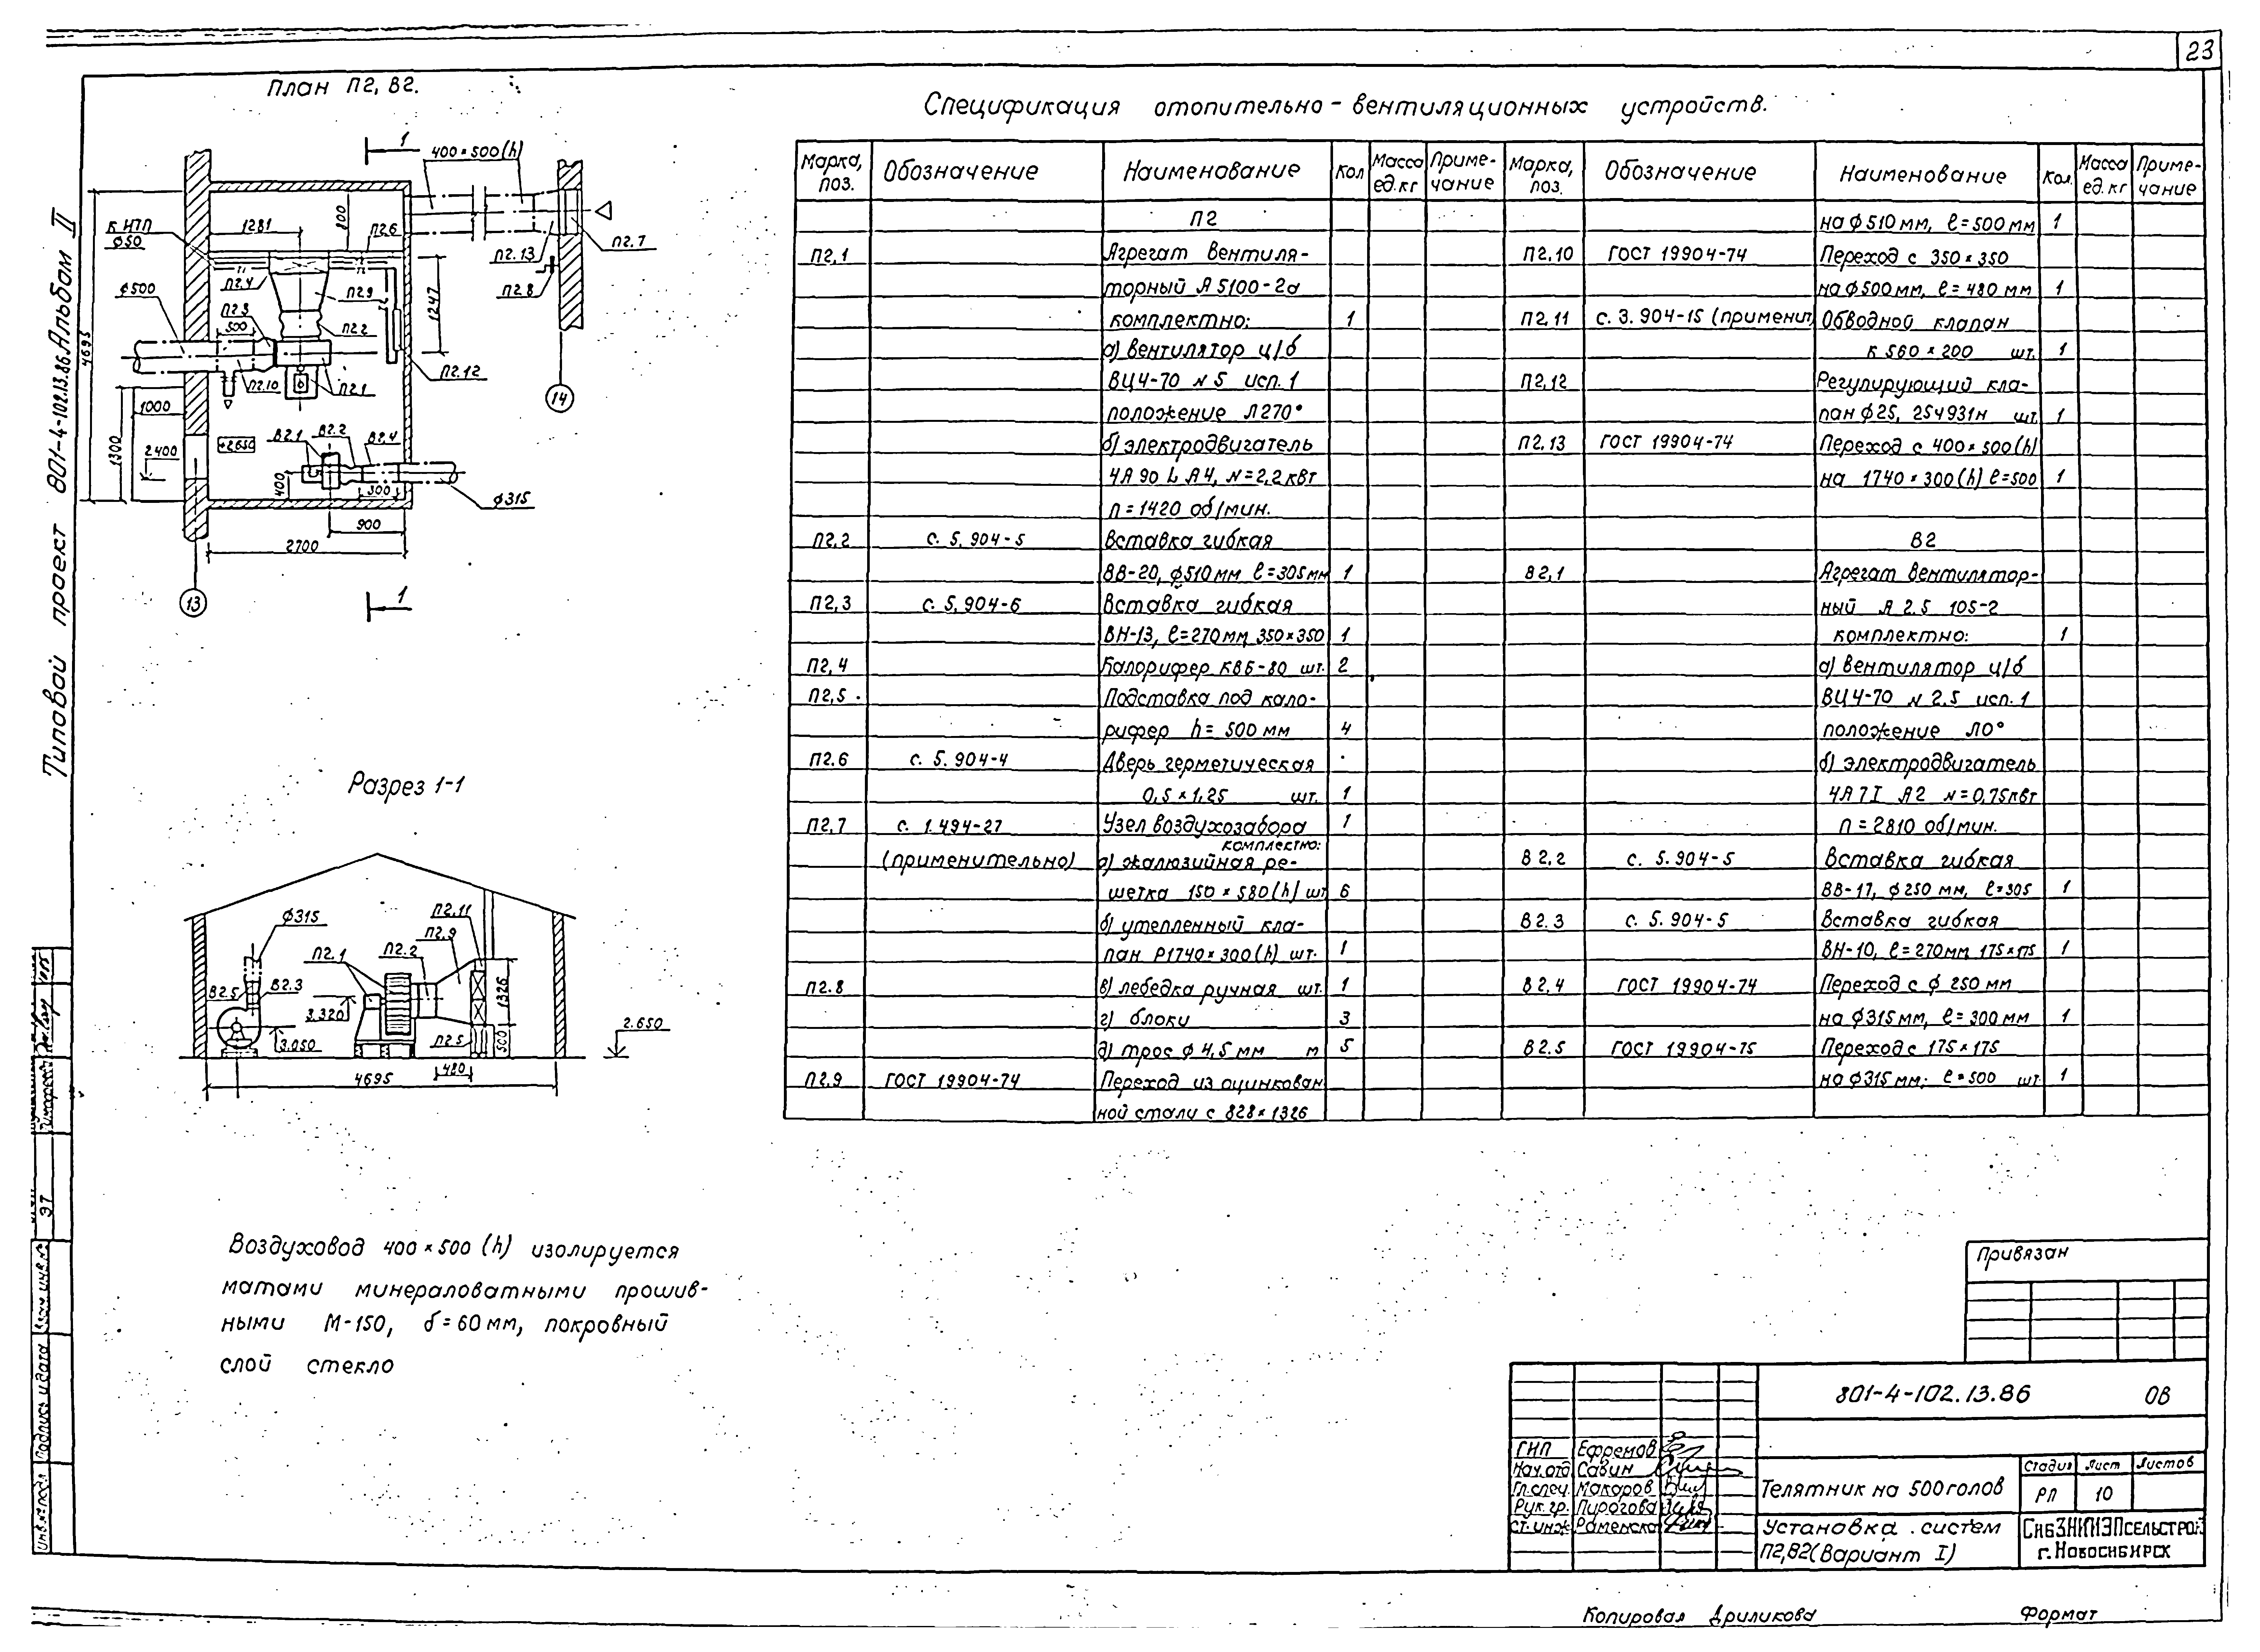 23
План П2, В2.
1
400×500(h)
К ИТП
ф50
1281
800
П2.6
П2.13
П2.7
П2.8
П2.4
П2.9
1247
ф500
П2.3
500
П2.2
П2.12
4695
П2.10
П2.1
14
1000
1300
2400
+2.650
В2.1
В2.2
В2.4
400
300
ф315
900
2700
13
1
Типовой проект 801-4-102.13.86. Альбом II
Разрез 1-1
ф315
П2.11
П2.9
П2.1
П2.2
В2.5
В2.3
3.320
1326
3.050
П2.5
500
2.650
480
4695
Воздуховод 400×500 (h) изолируется
матами минераловатными прошив-
ными М-150, δ=60мм, покровный
слой стекло
Спецификация отопительно-вентиляционных устройств.
Марка, поз. Обозначение Наименование Кол Масса ед.кг Приме-чание Марка, поз. Обозначение Наименование Кол. Масса ед.кг Приме-чание
П2
П2,1 Агрегат вентиля-
торный А5100-2а
комплектно: 1
а) вентилятор ц/б
ВЦ4-70 N5 исп.1
положение Л270°
б) электродвигатель
4А 90 L А4, N=2,2 кВт
n=1420 об/мин.
П2,2 с. 5.904-5 Вставка гибкая
ВВ-20, ф510мм ℓ=305мм 1
П2,3 с. 5.904-6 Вставка гибкая
ВН-13, ℓ=270мм, 350×350 1
П2,4 Калорифер КВБ-80 шт. 2
П2,5 Подставка под кало-
рифер h=500мм 4
П2.6 с. 5.904-4 Дверь герметическая
0,5×1,25 шт. 1
П2,7 с. 1.494-27 Узел воздухозабора 1
комплектно:
(применительно) а) жалюзийная ре-
шетка 150×580(h) шт 6
б) утепленный кла-
пан Р1740×300(h) шт. 1
П2.8 в) лебедка ручная шт. 1
г) блоки 3
д) трос ф 4,5 мм м 5
П2.9 ГОСТ 19904-74 Переход из оцинкован
ной стали с 828×1326
на ф510мм, ℓ=500мм 1
П2,10 ГОСТ 19904-74 Переход с 350×350
на ф500мм, ℓ=480мм 1
П2,11 с. 3.904-15 (применит) Обводной клапан
к 560×200 шт. 1
П2,12 Регулирующий кла-
пан ф25, 25ч931н шт. 1
П2,13 ГОСТ 19904-74 Переход с 400×500(h)
на 1740×300(h) ℓ=500 1
В2
В2,1 Агрегат вентилятор-
ный А 2.5 105-2
комплектно: 1
а) вентилятор ц/б
ВЦ4-70 N 2.5 исп.1
положение Л0°
б) электродвигатель
4А 7I А2 N=0,75кВт
n=2810 об/мин.
В2,2 с. 5.904-5 Вставка гибкая
ВВ-17, ф250мм, ℓ=305 1
В2.3 с. 5.904-5 Вставка гибкая
ВН-10, ℓ=270мм, 175×175 1
В2,4 ГОСТ 19904-74 Переход с ф 250мм
на ф315мм, ℓ=300мм 1
В2.5 ГОСТ 19904-75 Переход с 175×175
на ф315мм; ℓ=500 шт. 1
Привязан
801-4-102.13.86 ОВ
ГИП Ефремов
Нач.отд Савин
Гл.спец. Макаров
Рук.гр. Пирогова
Ст.инж Раменска
Телятник на 500 голов
Стадия Лист Листов
РП 10
Установка систем
П2,В2 (Вариант I)
СибЗНИИЭПсельстрой
г.Новосибирск
Копировал Дриликова Формат
Взам.инв.№
Подпись и дата
Инв.№ подл
ЭТ